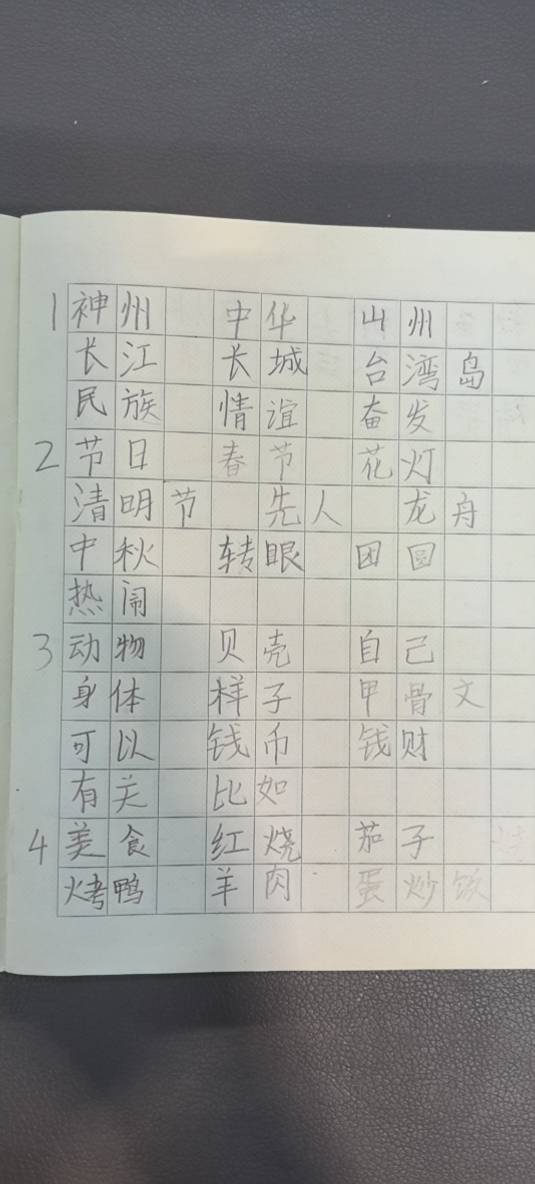 1 神州 中华 山州
长江 长城 台湾岛
民族 情谊 奋发
2 节日 春节 花灯
清明节 先人 龙舟
中秋 转眼 团圆
热闹
3 动物 贝壳 自己
身体 样子 甲骨文
可以 钱币 钱财
有关 比如
4 美食 红烧 茄子
烤鸭 羊肉 蛋炒饭